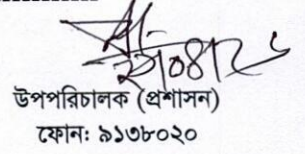 উপপরিচালক (প্রশাসন)
ফোন: ৯১৩৮০২০